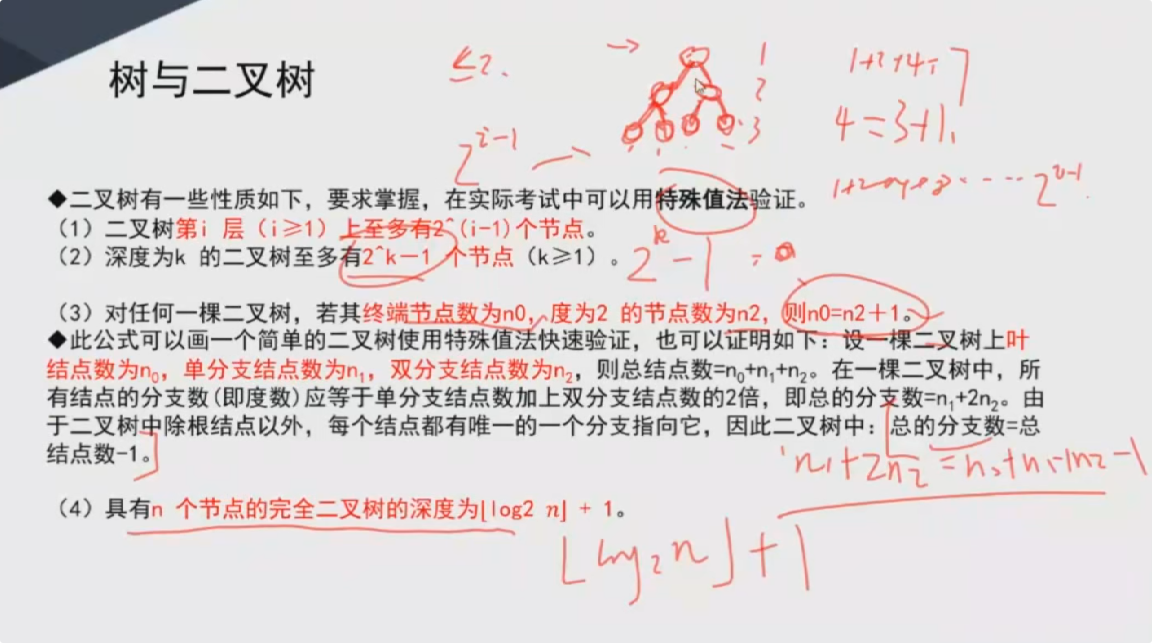 树与二叉树
≤2.
→
1
2
3
1+2+4=7
4=3+1.
2^{i-1}
1+2+4+8……2^{i-1}
◆二叉树有一些性质如下，要求掌握，在实际考试中可以用特殊值法验证。
（1）二叉树第i 层（i≥1）上至多有2^(i-1)个节点。
（2）深度为k 的二叉树至多有2^k－1 个节点（k≥1）。
2^k-1
（3）对任何一棵二叉树，若其终端节点数为n0，度为2 的节点数为n2，则n0=n2＋1。
◆此公式可以画一个简单的二叉树使用特殊值法快速验证，也可以证明如下：设一棵二叉树上叶
结点数为n₀，单分支结点数为n₁，双分支结点数为n₂，则总结点数=n₀+n₁+n₂。在一棵二叉树中，所
有结点的分支数(即度数)应等于单分支结点数加上双分支结点数的2倍，即总的分支数=n₁+2n₂。由
于二叉树中除根结点以外，每个结点都有唯一的一个分支指向它，因此二叉树中：总的分支数=总
结点数-1。
n₁+2n₂=n₀+n₁+n₂-1
（4）具有n 个节点的完全二叉树的深度为⌊log2 n⌋ + 1。
⌊log₂n⌋+1